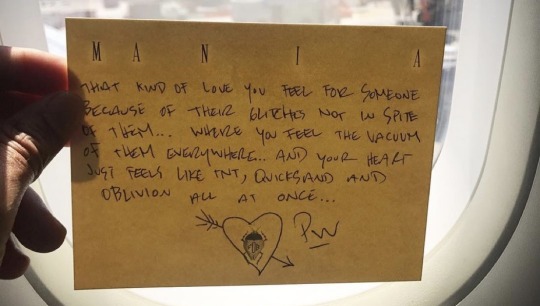 M A N I A
THAT KIND OF LOVE YOU FEEL FOR SOMEONE
BECAUSE OF THEIR GLITCHES NOT IN SPITE
OF THEM... WHERE YOU FEEL THE VACUUM
OF THEM EVERYWHERE.. AND YOUR HEART
JUST FEELS LIKE TNT, QUICKSAND AND
OBLIVION ALL AT ONCE...
PW